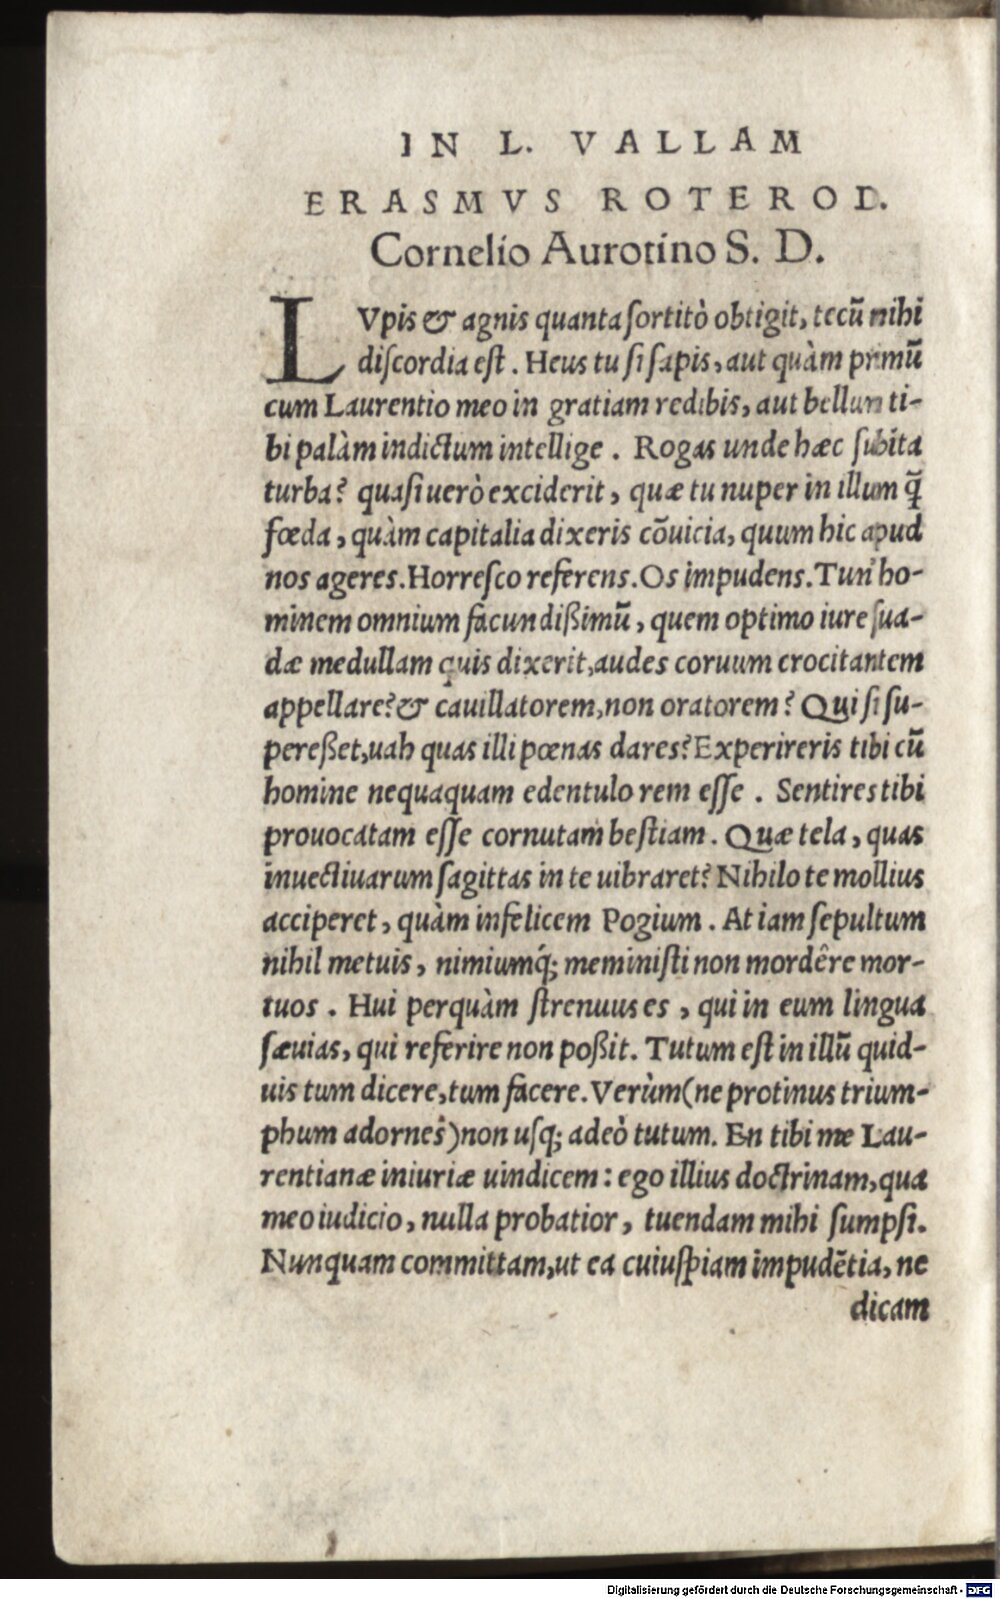 IN L. VALLAM
ERASMVS ROTEROD.
Cornelio Aurotino S. D.
LVpis & agnis quanta ſortitò obtigit, tecũ mihi
diſcordia eſt. Heus tu ſi ſapis, aut quàm primũ
cum Laurentio meo in gratiam redibis, aut bellum ti-
bi palàm indictum intellige. Rogas unde hæc ſubita
turba? quaſi uerò exciderit, quæ tu nuper in illum q̃
fœda, quàm capitalia dixeris cõuicia, quum hic apud
nos ageres. Horreſco referens. Os impudens. Tun' ho-
minem omnium facundißimũ, quem optimo iure ſua-
dæ medullam quis dixerit, audes coruum crocitantem
appellare? & cauillatorem, non oratorem? Qui ſi ſu-
pereßet, uah quas illi pœnas dares? Experireris tibi cũ
homine nequaquam edentulo rem eſſe. Sentires tibi
prouocatam eſſe cornutam beſtiam. Quæ tela, quas
inuectiuarum ſagittas in te uibraret? Nihilo te mollius
acciperet, quàm infelicem Pogium. At iam ſepultum
nihil metuis, nimiumq́; meminiſti non mordêre mor-
tuos. Hui perquàm ſtrenuus es, qui in eum lingua
ſæuias, qui referire non poßit. Tutum eſt in illũ quid-
uis tum dicere, tum facere. Verùm (ne protinus trium-
phum adornes) non uſq; adeò tutum. En tibi me Lau-
rentianæ iniuriæ uindicem: ego illius doctrinam, qua
meo iudicio, nulla probatior, tuendam mihi ſumpſi.
Nunquam committam, ut ea cuiuſpiam impudẽtia, ne
dicam
Digitalisierung gefördert durch die Deutsche Forschungsgemeinschaft - DFG